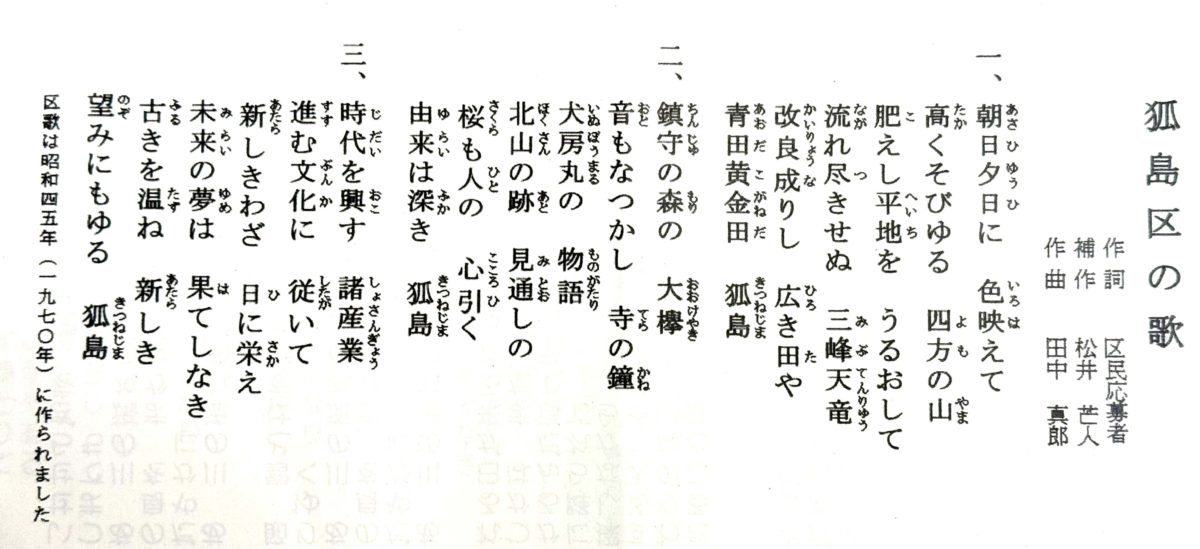 狐島区の歌
作詞　区民応募者
補作　松井　芒人
作曲　田中　真郎
一、朝日夕日に　色映えて
高くそびゆる　四方の山
肥えし平地を　うるおして
流れ尽きせぬ　三峰天竜
改良成りし　広き田や
青田黄金田　狐島
二、鎮守の森の　大欅
音もなつかし　寺の鐘
犬房丸の　物語
北山の跡　見通しの
桜も人の　心引く
由来は深き　狐島
三、時代を興す　諸産業
進む文化に　従いて
新しきわざ　日に栄え
未来の夢は　果てしなき
古きを温ね　新しき
望みにもゆる　狐島
区歌は昭和四五年（一九七〇年）に作られました